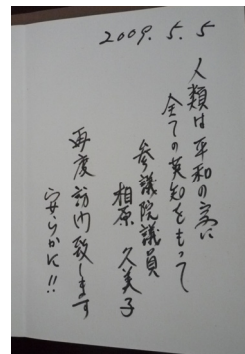 2009. 5. 5
人類は平和の為に
全ての英知をもって
参議院議員
相原 久美子
再度訪問致します
安らかに!!